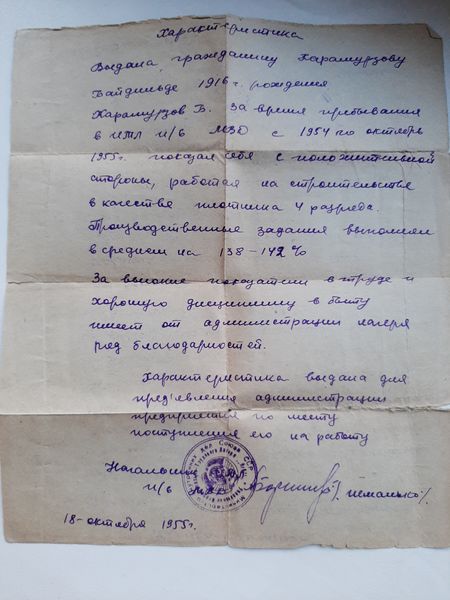 Характеристика
Выдана гражданину Харамурзову
Байдильде 1916 г. рождения
Харамурзов Б. За время пребывания
в ИТЛ п/б с 1954 по октябрь
1955г. показал себя с положительной
стороны, работая на строительстве
в качестве плотника 4 разряда.
Производственные задания выполнял
в среднем на 138-142 %
За высокие показатели в труде и
хорошую дисциплину в быту
имеет от администрации лагеря
ряд благодарностей.
Характеристика выдана для
предъявления администрации
предприятия по месту
поступления его на работу
Начальник
п/б
18-октября 1955г.